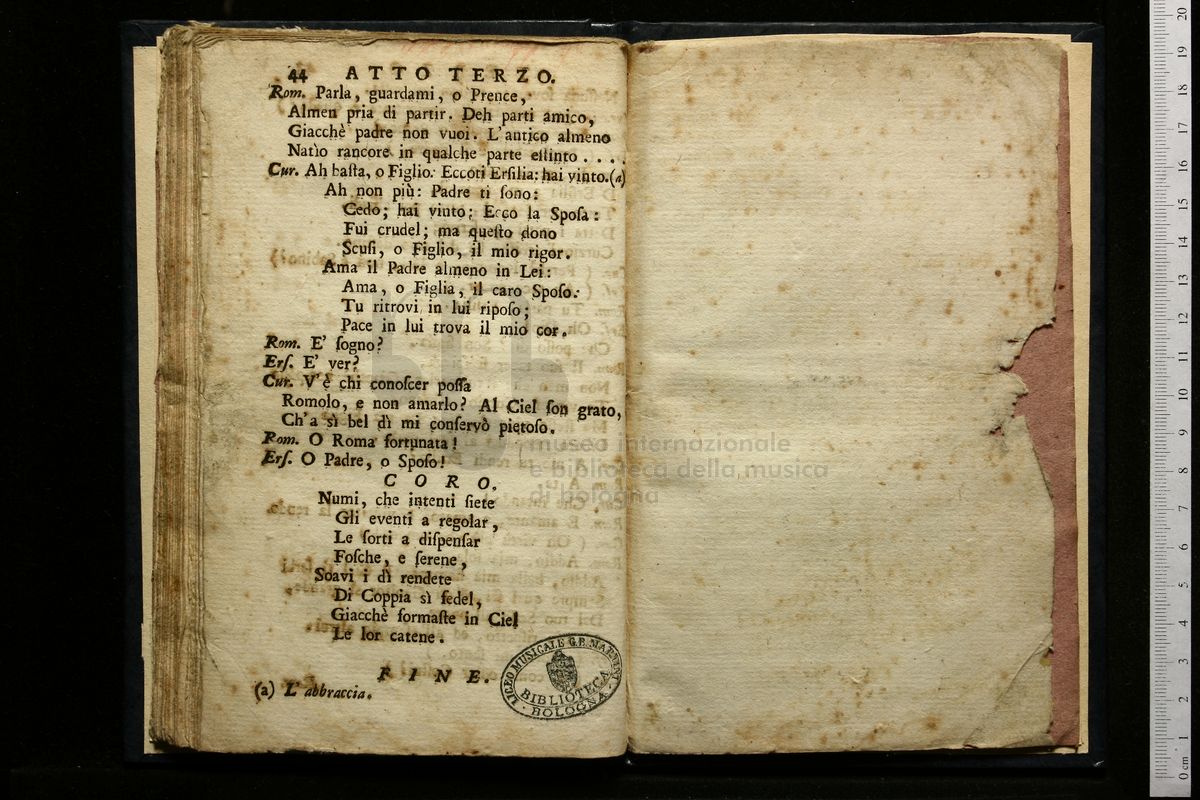 44 ATTO TERZO.
Rom. Parla, guardami, o Prence,
Almen pria di partir. Deh parti amico,
Giacchè padre non vuoi. L'antico almeno
Natìo rancore in qualche parte eſtinto . . . .
Cur. Ah baſta, o Figlio: Eccoti Erſilia: hai vinto.(a)
Ah non più: Padre ti ſono:
Cedo; hai vinto: Ecco la Spoſa:
Fui crudel; ma queſto dono
Scuſi, o Figlio, il mio rigor.
Ama il Padre almeno in Lei:
Ama, o Figlia, il caro Spoſo:
Tu ritrovi in lui ripoſo;
Pace in lui trova il mio cor.
Rom. E' ſogno?
Erſ. E' ver?
Cur. V'è chi conoſcer poſſa
Romolo, e non amarlo? Al Ciel ſon grato,
Ch'a sì bel dì mi conſervò pietoſo.
Rom. O Roma fortunata!
Erſ. O Padre, o Spoſo!
CORO.
Numi, che intenti ſiete
Gli eventi a regolar,
Le ſorti a diſpenſar
Foſche, e ſerene,
Soavi i dì rendete
Di Coppia sì fedel,
Giacchè formaſte in Ciel
Le lor catene.
FINE.
(a) L'abbraccia.
LICEO MUSICALE G.B. MARTINI
BIBLIOTECA
BOLOGNA
museo internazionale
e biblioteca della musica
di bologna
0 cm 1 2 3 4 5 6 7 8 9 10 11 12 13 14 15 16 17 18 19 20